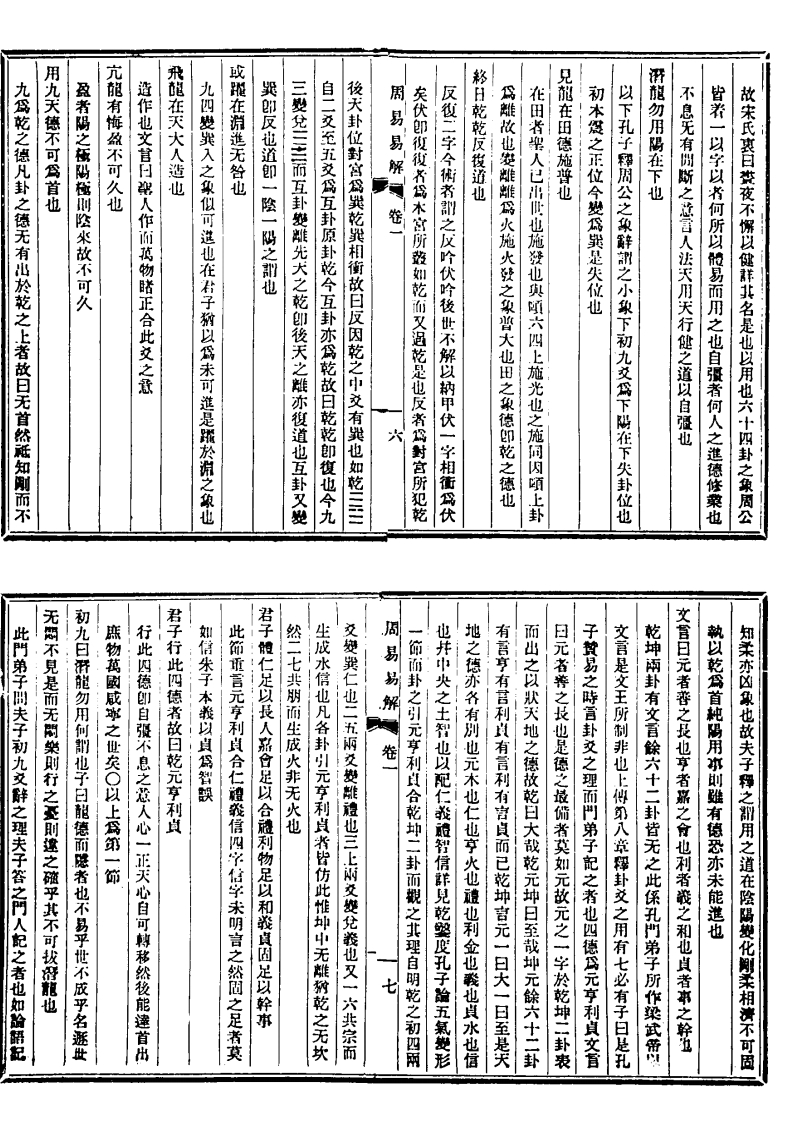 故宋氏衷曰晝夜不懈以健詳其名是也以用也六十四卦之象周公
皆著一以字以者何所以體易而用之也自彊者何人之進德修業也
不息无有間斷之意言人法天用天行健之道以自彊也
潛龍勿用陽在下也
以下孔子釋周公之象辭謂之小象下初九爻爲下陽在下失卦位也
初本震之正位今變爲巽是失位也
見龍在田德施普也
在田者聖人已出世也施發也與頤六四上施光也之施同因頤上卦
爲離故也變離離爲火施火發之象普大也田之象德卽乾之德也
終日乾乾反復道也
反復二字今術者謂之反吟伏吟後世不解以納甲伏一字相衝爲伏
矣伏卽復復者爲本宮所叢如乾而又過乾是也反者爲對宮所犯乾
周易易解
卷一
六
後天卦位對宮爲巽乾巽相衝故曰反因乾之中爻有巽也如乾三三
自二爻至五爻爲互卦原卦乾今互卦亦爲乾故曰乾乾卽復也今九
三變兌三三而互卦變離先天之乾卽後天之離亦復道也互卦又變
巽卽反也道卽一陰一陽之謂也
或躍在淵進无咎也
九四變巽入之象似可進也在君子猶以爲未可進是躍於淵之象也
飛龍在天大人造也
造作也文言曰聖人作而萬物睹正合此爻之意
亢龍有悔盈不可久也
盈者陽之極陽極則陰來故不可久
用九天德不可爲首也
九爲乾之德凡卦之德无有出於乾之上者故曰无首然祗知剛而不
知柔亦凶象也故夫子釋之謂用之道在陰陽變化剛柔相濟不可固
執以乾爲首純陽用事則雖有德恐亦未能進也
文言曰元者善之長也亨者嘉之會也利者義之和也貞者事之幹也
乾坤兩卦有文言餘六十二卦皆无之此係孔門弟子所作梁武帝以
文言是文王所制非也上傳第八章釋卦爻之用有七必有子曰是孔
子贊易之時言卦爻之理而門弟子記之者也四德爲元亨利貞文言
曰元者善之長也是德之最備者莫如元故元之一字於乾坤二卦表
而出之以狀天地之德故乾曰大哉乾元坤曰至哉坤元餘六十二卦
有言亨有言利貞有言利有言貞而已乾坤言元一曰大一曰至是天
地之德亦各有別也元木也仁也亨火也禮也利金也義也貞水也信
也幷中央之土智也以配仁義禮智信詳見乾鑿度孔子論五氣變形
一節而卦之引元亨利貞合乾坤二卦而觀之其理自明乾之初四兩
周易易解
卷一
七
爻變巽仁也二五兩爻變離禮也三上兩爻變兌義也又一六共宗而
生成水信也凡各卦引元亨利貞者皆仿此惟坤中无離猶乾之无坎
然二七共朋而生成火非无火也
君子體仁足以長人嘉會足以合禮利物足以和義貞固足以幹事
此節重言元亨利貞合仁禮義信四字信字未明言之然固之足者莫
如信朱子本義以貞爲智誤
君子行此四德者故曰乾元亨利貞
行此四德卽自彊不息之意人心一正天心自可轉移然後能達首出
庶物萬國咸寧之世矣〇以上爲第一節
初九曰潛龍勿用何謂也子曰龍德而隱者也不易乎世不成乎名遯世
无悶不見是而无悶樂則行之憂則違之確乎其不可拔潛龍也
此門弟子問夫子初九爻辭之理夫子答之門人記之者也如論語記